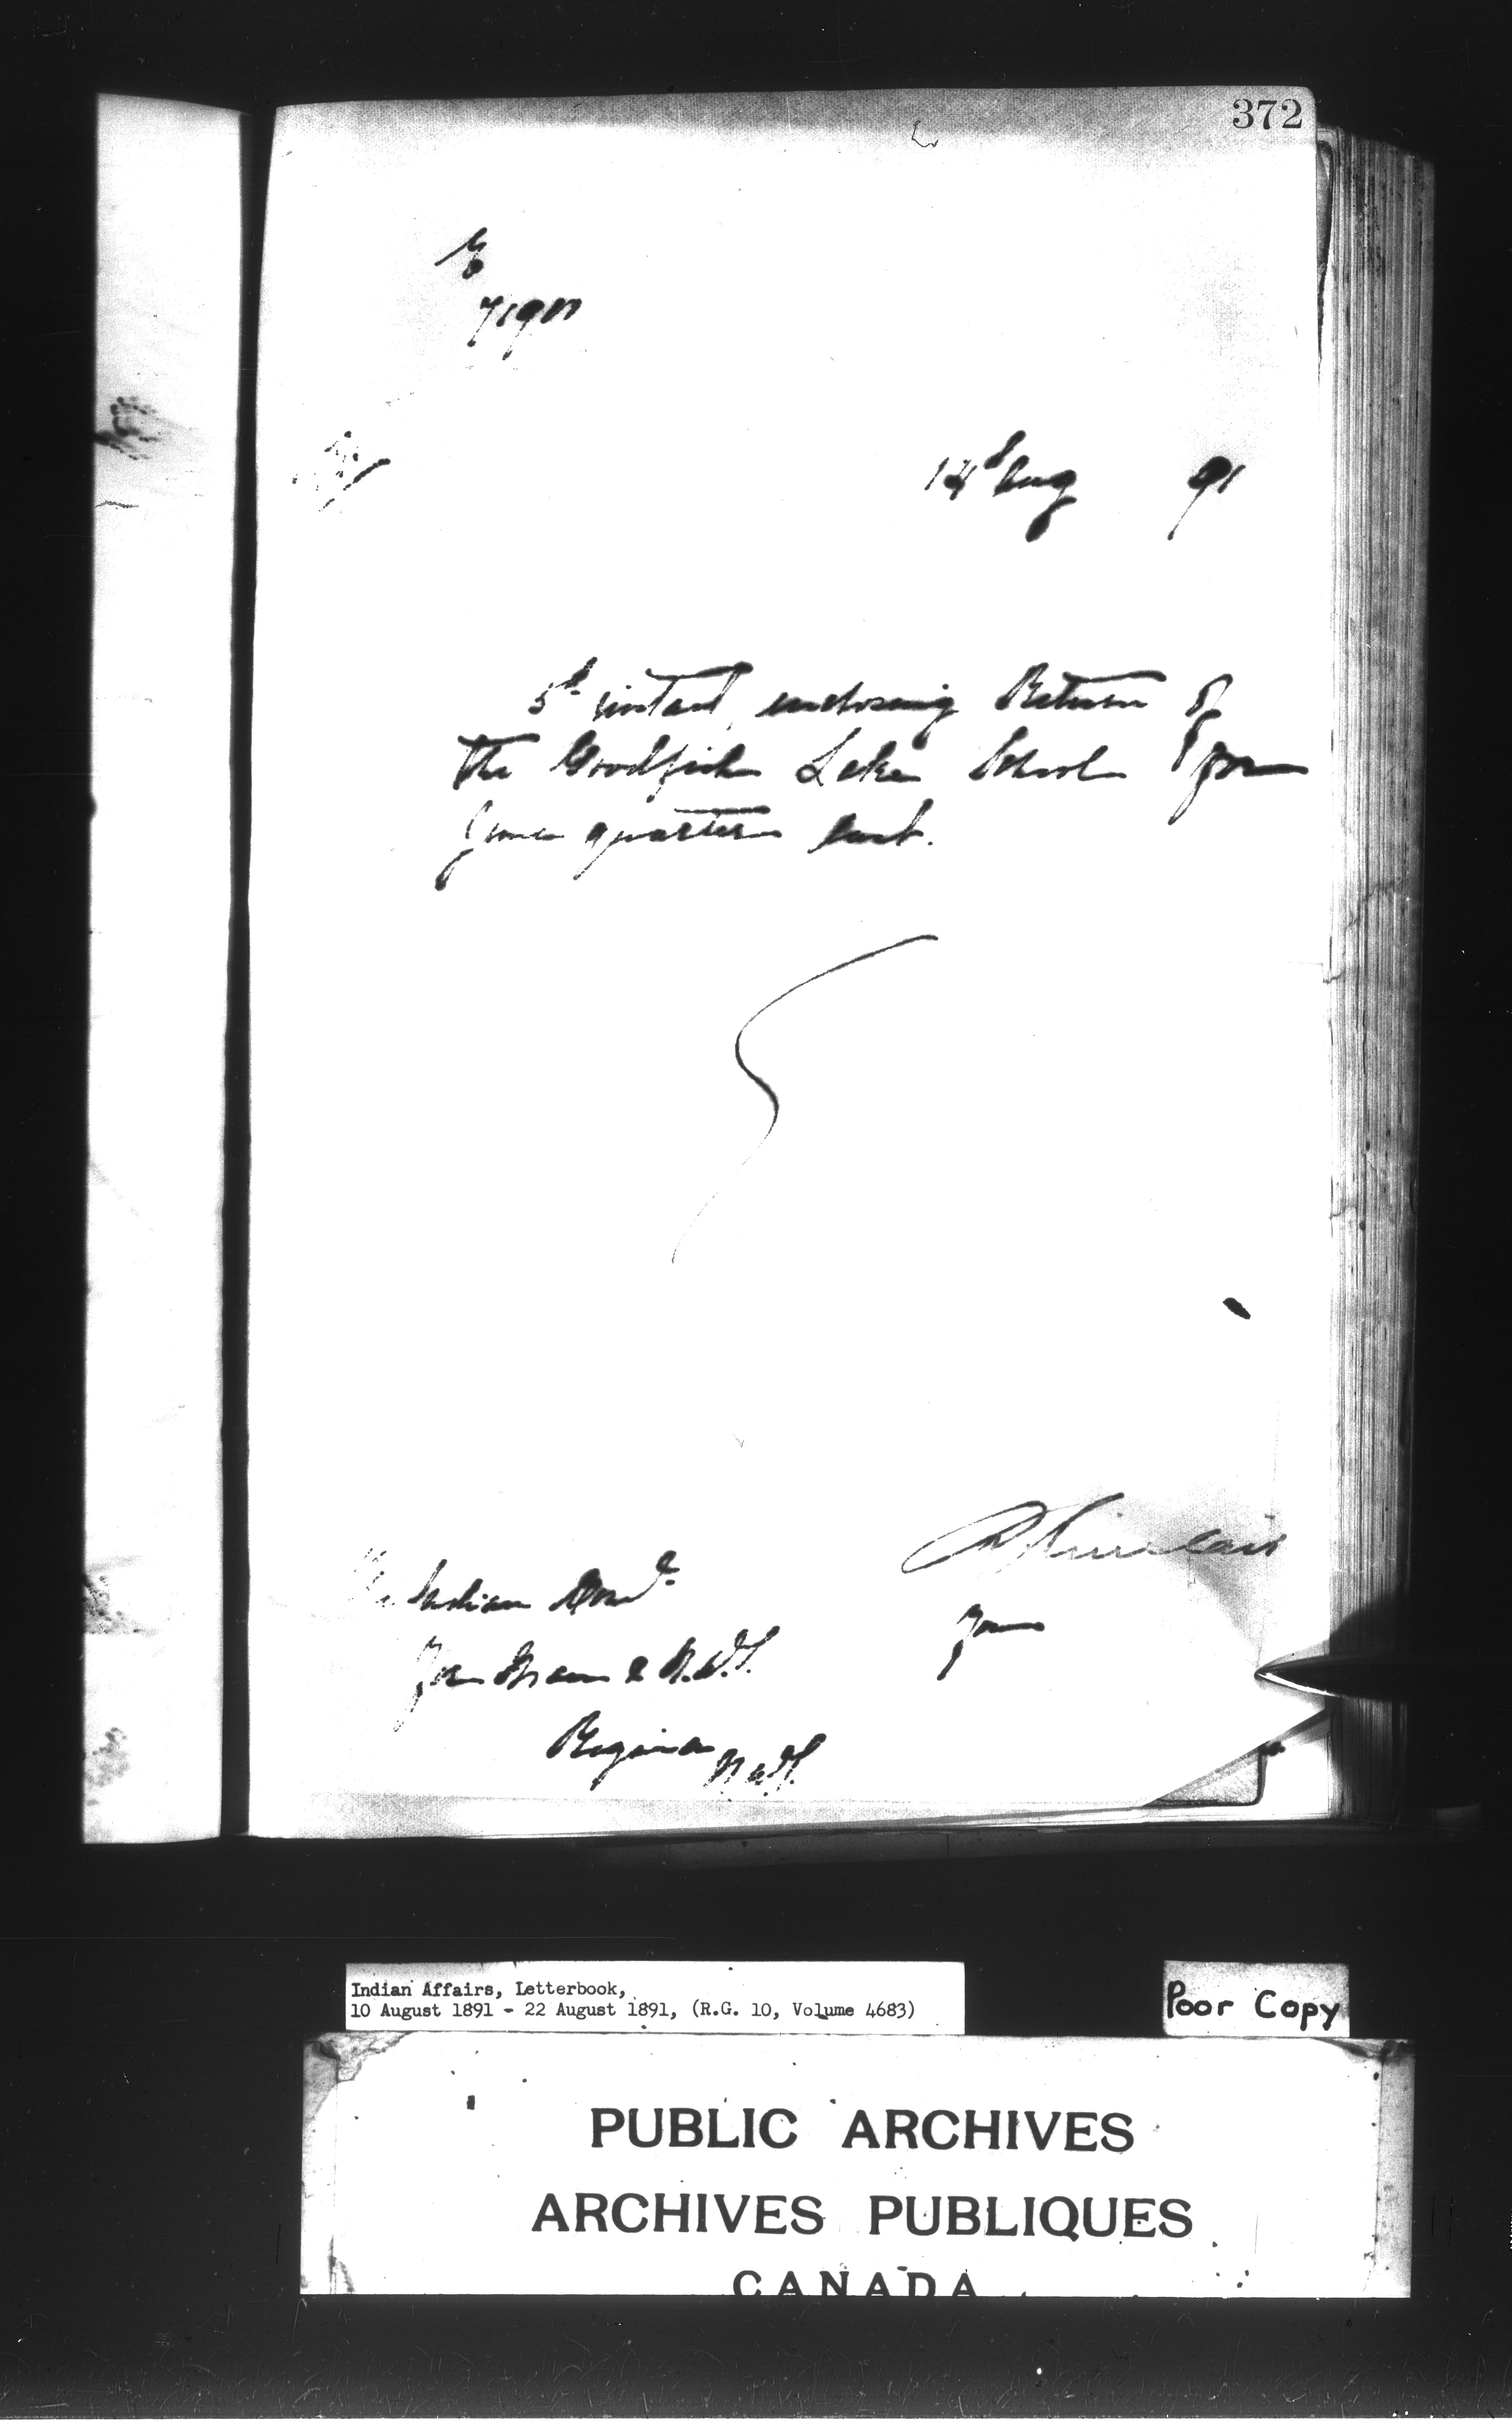 372
14th Aug 91
5th instant, enclosing Return of
the Goodfish Lake School for
June quarter last.
R Sinclair
Indian Comr.
for
For Man & N.W.T.
Regina
N.W.T.
Indian Affairs, Letterbook,
10 August 1891 - 22 August 1891, (R.G. 10, Volume 4683)
Poor Copy
PUBLIC ARCHIVES
ARCHIVES PUBLIQUES
CANADA